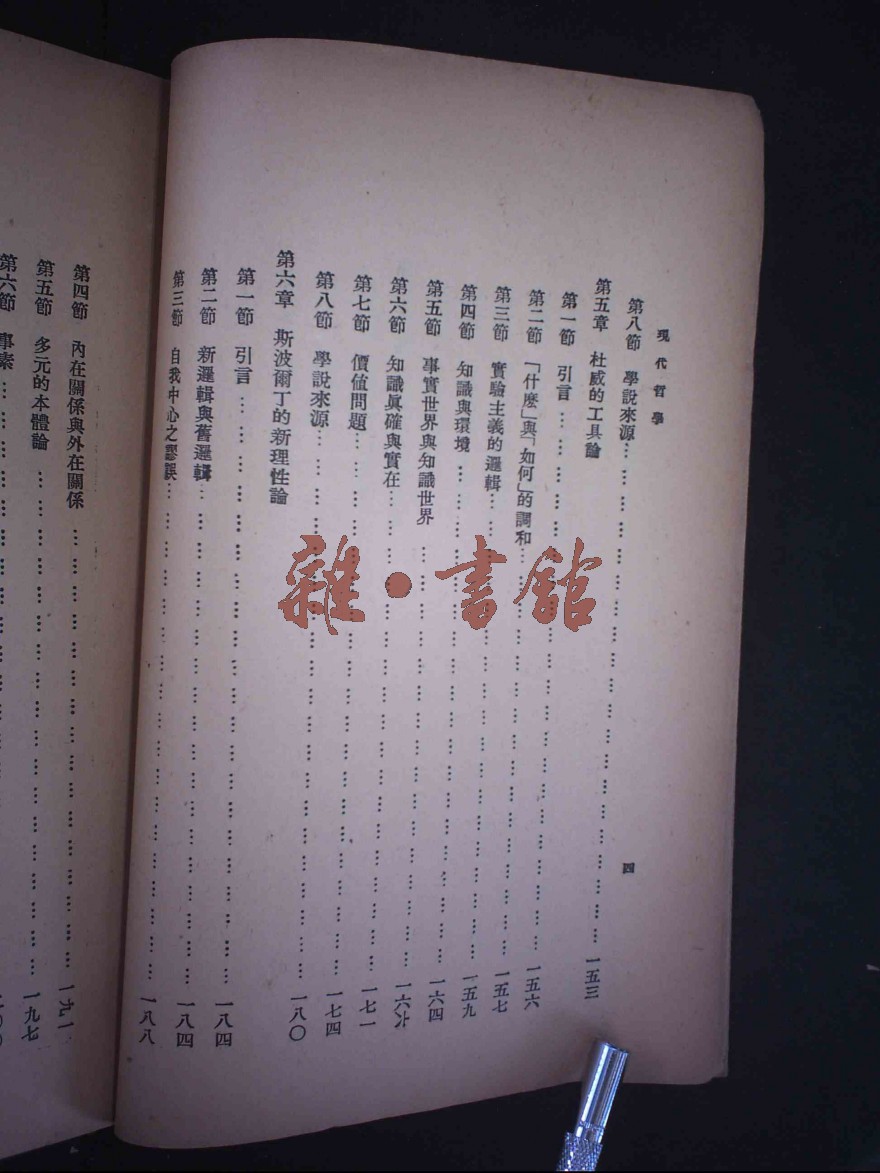 現代哲學
四
第八節 學說來源……一五三
第五章 杜威的工具論
第一節 引言……一五六
第二節 「什麽」與「如何」的調和……一五七
第三節 實驗主義的邏輯……一五九
第四節 知識與環境……一六四
第五節 事實世界與知識世界……一六八
第六節 知識眞確與實在……一七一
第七節 價値問題……一七四
第八節 學說來源……一八〇
第六章 斯波爾丁的新理性論
第一節 引言……一八四
第二節 新邏輯與舊邏輯……一八四
第三節 自我中心之謬誤……一八八
第四節 內在關係與外在關係……一九一
第五節 多元的本體論……一九七
第六節
雜·書館